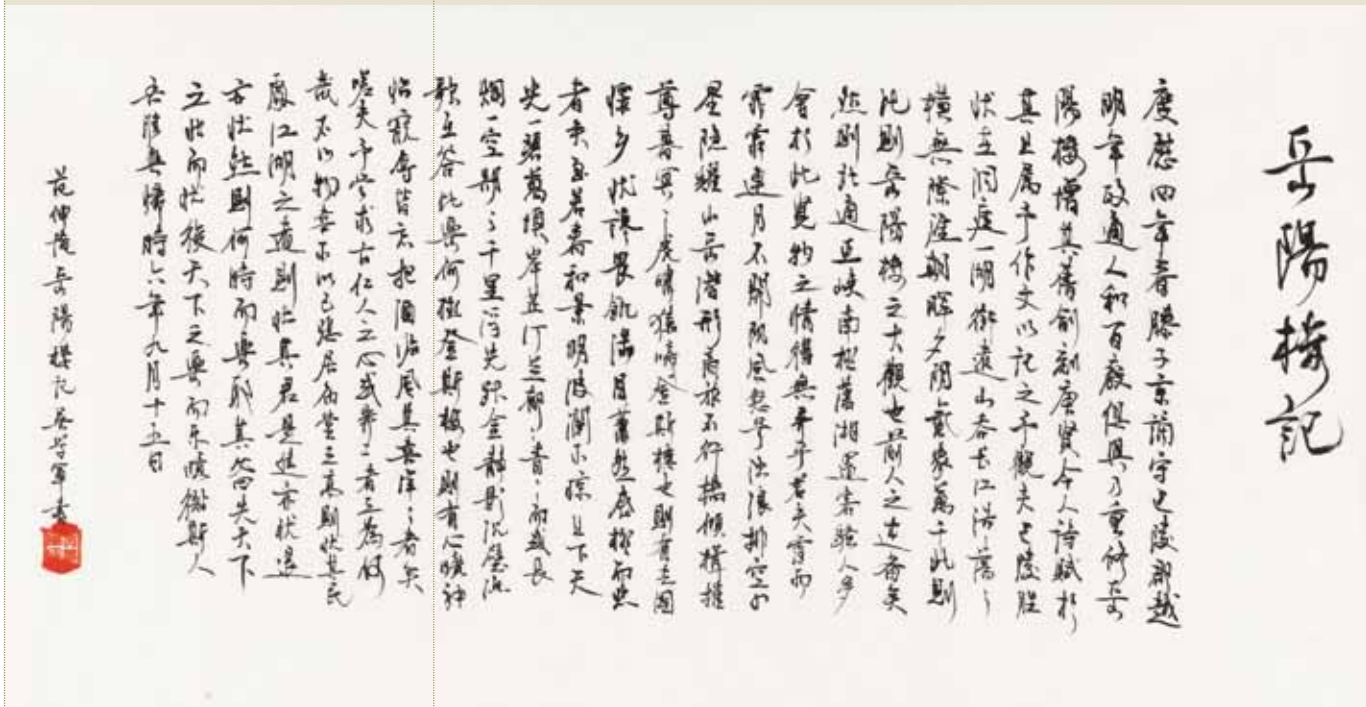 岳陽樓記
慶曆四年春滕子京謫守巴陵郡越
明年政通人和百廢俱興乃重修岳
陽樓增其舊制刻唐賢今人詩賦於
其上屬予作文以記之予觀夫巴陵勝
狀在洞庭一湖銜遠山吞長江浩浩湯湯
橫無際涯朝暉夕陰氣象萬千此則
此則岳陽樓之大觀也前人之述備矣
然則北通巫峽南極瀟湘遷客騷人多
會於此覽物之情得無異乎若夫霪雨
霏霏連月不開陰風怒號濁浪排空日
星隱耀山岳潛形商旅不行檣傾楫摧
薄暮冥冥虎嘯猿啼登斯樓也則有去國
懷鄉憂讒畏譏滿目蕭然感極而悲
者矣至若春和景明波瀾不驚上下天
光一碧萬頃岸芷汀蘭郁郁青青而或長
煙一空皓月千里浮光躍金靜影沉璧漁
歌互答此樂何極登斯樓也則有心曠神
怡寵辱皆忘把酒臨風其喜洋洋者矣
嗟夫予嘗求古仁人之心或異二者之為何
哉不以物喜不以己悲居廟堂之高則憂其民
處江湖之遠則憂其君是進亦憂退
亦憂然則何時而樂耶其必曰先天下
之憂而憂後天下之樂而樂噫微斯人
吾誰與歸時六年九月十五日
范仲淹岳陽樓記